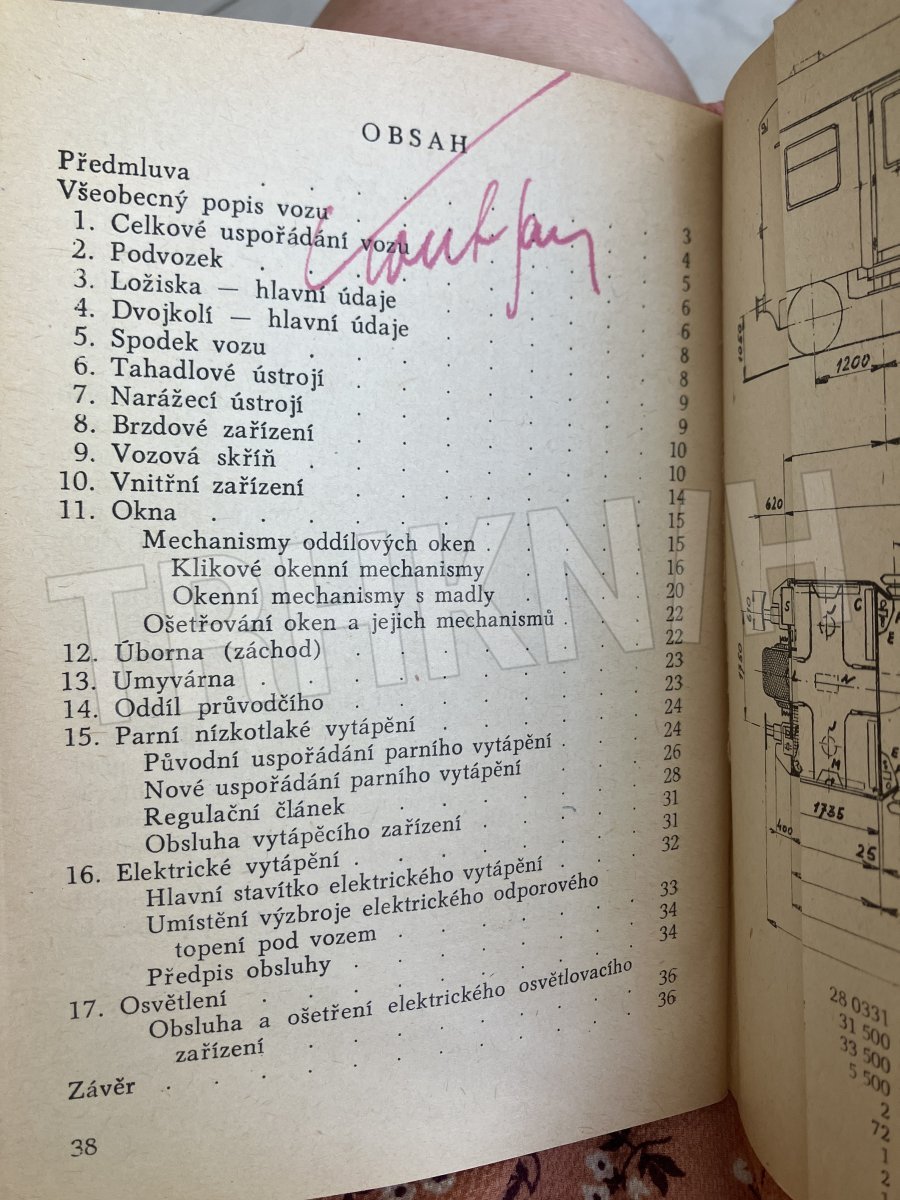 OBSAH
Předmluva 3
Všeobecný popis vozu 4
1. Celkové uspořádání vozu 5
2. Podvozek 6
3. Ložiska — hlavní údaje 6
4. Dvojkolí — hlavní údaje 8
5. Spodek vozu 8
6. Tahadlové ústrojí 9
7. Narážecí ústrojí 9
8. Brzdové zařízení 10
9. Vozová skříň 10
10. Vnitřní zařízení 14
11. Okna 15
Mechanismy oddílových oken 15
Klikové okenní mechanismy 16
Okenní mechanismy s madly 20
Ošetřování oken a jejich mechanismů 22
12. Úborna (záchod) 22
13. Umyvárna 23
14. Oddíl průvodčího 23
15. Parní nízkotlaké vytápění 24
Původní uspořádání parního vytápění 24
Nové uspořádání parního vytápění 26
Regulační článek 28
Obsluha vytápěcího zařízení 31
16. Elektrické vytápění 31
Hlavní stavítko elektrického vytápění 32
Umístění výzbroje elektrického odporového
topení pod vozem 33
Předpis obsluhy 34
17. Osvětlení 34
Obsluha a ošetření elektrického osvětlovacího
zařízení 36
Závěr 36
38
TRHKNIH
1050
1200
620
610
1450
1735
400
25
28 0331
31 500
33 500
5 500
2
72
1
2
1